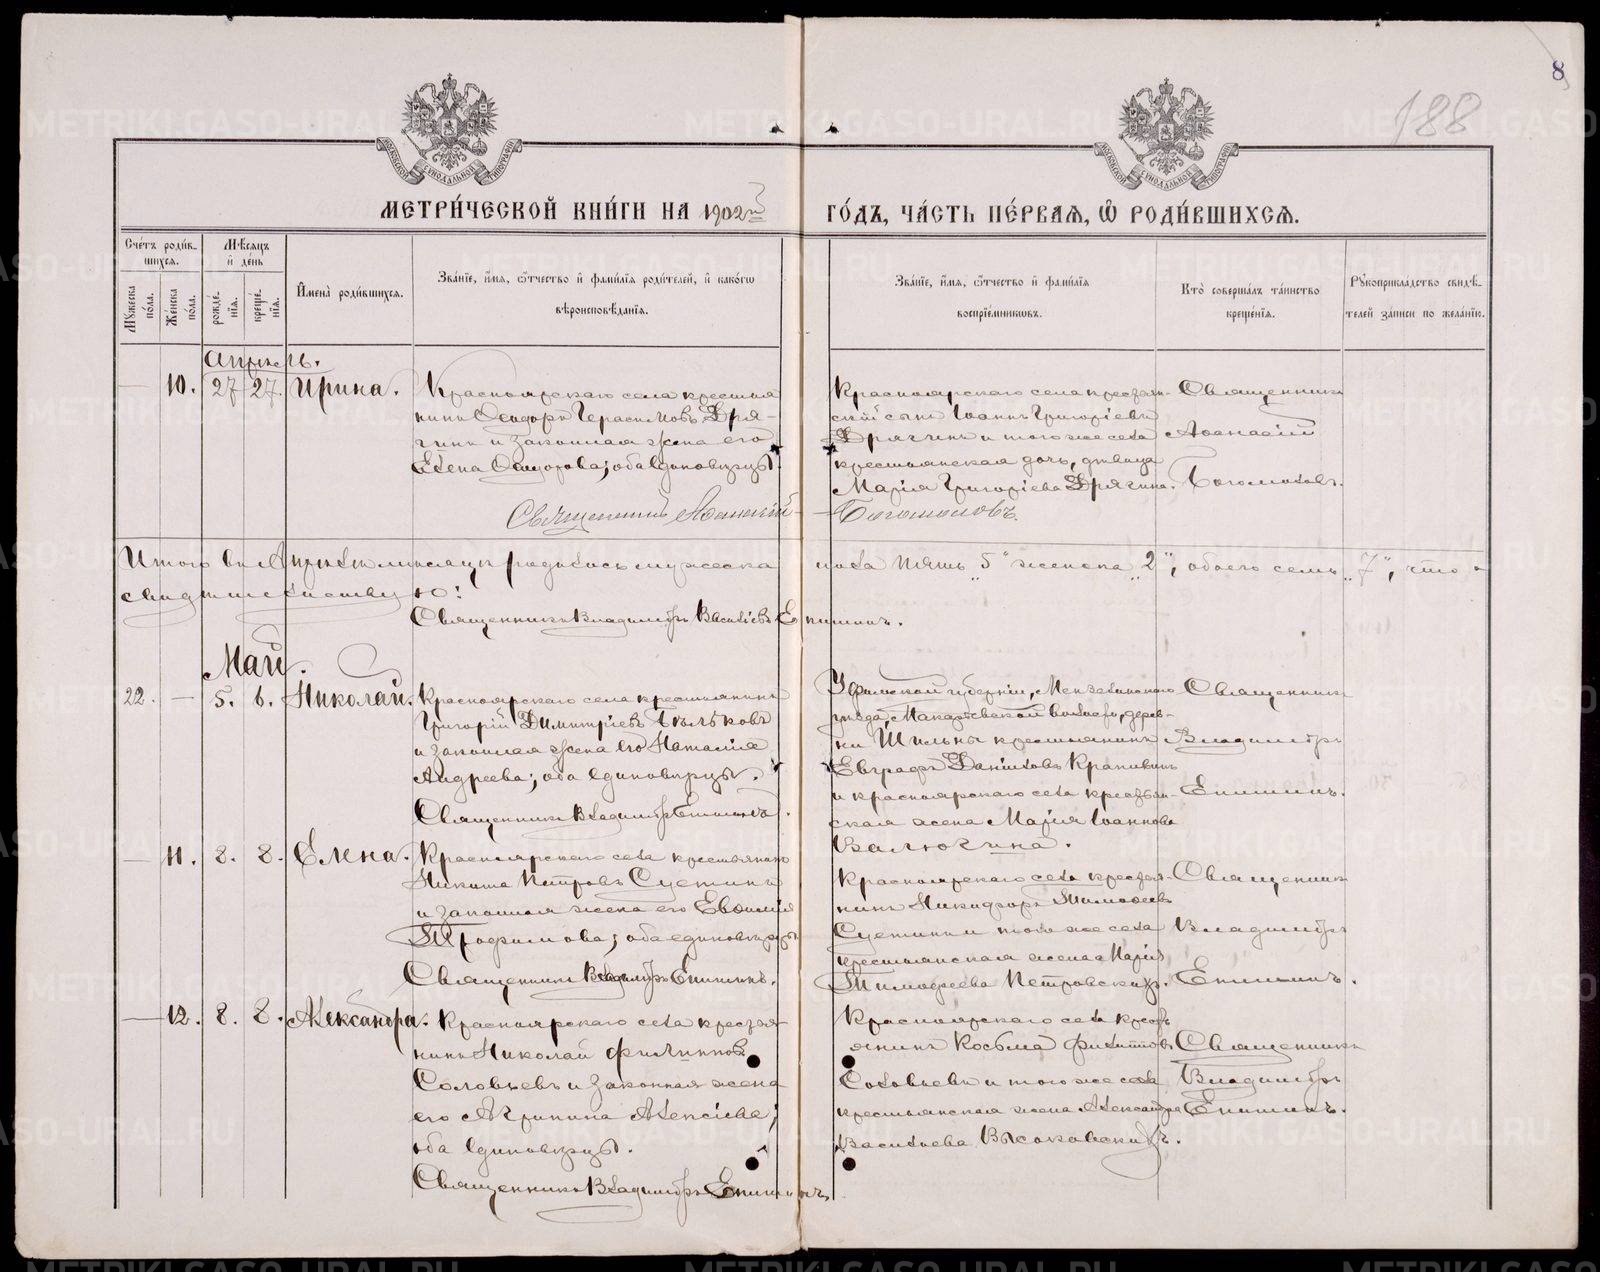 8
188
МОСКОВСКОЙ СѴНОДАЛЬНОЙ ТИПОГРАФІИ
МОСКОВСКОЙ СѴНОДАЛЬНОЙ ТИПОГРАФІИ
МЕТРИ́ЧЕСКОЙ КНИ́ГИ НА 1902й ГО́ДЪ, ЧА́СТЬ ПЕ́РВАЯ, Ѿ РОДИ́ВШИХСЯ.
Сче́тъ роди́в-
шихся.
Мѣсяцъ
и́ де́нь
Мꙋжеска по́ла.
Же́нска по́ла.
рожде́-
нія.
креще́-
нія.
И҆мена̀ роди́вшихся.
Зва́нїе, и҆́мя, ѻ҆́тчество и҆ фамилїя роди́телей, и҆ како́гѡ
вѣроисповѣ́данїя.
Зва́нїе, и҆́мя, ѻ҆́тчество и҆ фами́лїя
воспрїе́мниковъ.
Кто̀ соверша́лъ та́инство
креще́нїя.
Рꙋкоприкла́дство свидѣ́-
телей за́писи по жела́нїю.
Апрѣль.
— 10. 27 27. Ирина.
Красноярскаго села крестья
нинъ Ѳеодоръ Герасимовъ Дря-
гинъ и законная жена его
Елена Ѳеодорова; оба единовѣрцы.
Красноярскаго села крестьян-
скій сынъ Іоаннъ Григоріевъ
Дрягинъ и того же села
крестьянская дочь, дѣвица
Марія Григоріева Дрягина.
Священникъ
Аѳанасій
Богомоловъ.
Священникъ Аѳанасій Богомоловъ.
Итого въ Апрѣлѣ мѣсяцѣ родилось мужеска пола пять „5" женска „2", обоего семь „7", что и
свидѣтельствую:
Священникъ Владиміръ Васильевъ Епишинъ.
Май.
22. — 5. 6. Николай.
Красноярскаго села крестьянинъ
Григорій Димитріевъ Бѣльковъ
и законная жена его Наталія
Андреева; оба единовѣрцы.
Священникъ Владиміръ Епишинъ.
Уфимской губерніи, Мензелинскаго
уѣзда, Макарьевской волости, дерев-
ни Шильны крестьянинъ
Евграфъ Даніиловъ Крапивинъ
и красноярскаго села крестьян-
ская жена Марія Іоаннова
Валюгина.
Священникъ
Владиміръ
Епишинъ.
— 11. 8. 8. Елена.
Красноярскаго села крестьянинъ
Никита Петровъ Суетинъ
и законная жена его Евфимія
Трофимова; оба единовѣрцы
Священникъ Владиміръ Епишинъ.
Красноярскаго села крестья-
нинъ Никифоръ Тимофеевъ
Суетинъ и того же села
крестьянская жена Марія
Тимофеева Петровскихъ.
Священникъ
Владиміръ
Епишинъ.
— 12. 8. 8. Александра.
Красноярскаго села крестья-
нинъ Николай Филипповъ
Соловьевъ и законная жена
его Агрипина Алексіева;
оба единовѣрцы.
Священникъ Владиміръ Епишинъ.
Красноярскаго села кресть
янинъ Косьма Филипповъ
Соловьевъ и того же села
крестьянская жена Александра
Васильева Высоковскихъ.
Священникъ
Владиміръ
Епишинъ.
METRIKI.GASO-URAL.RU